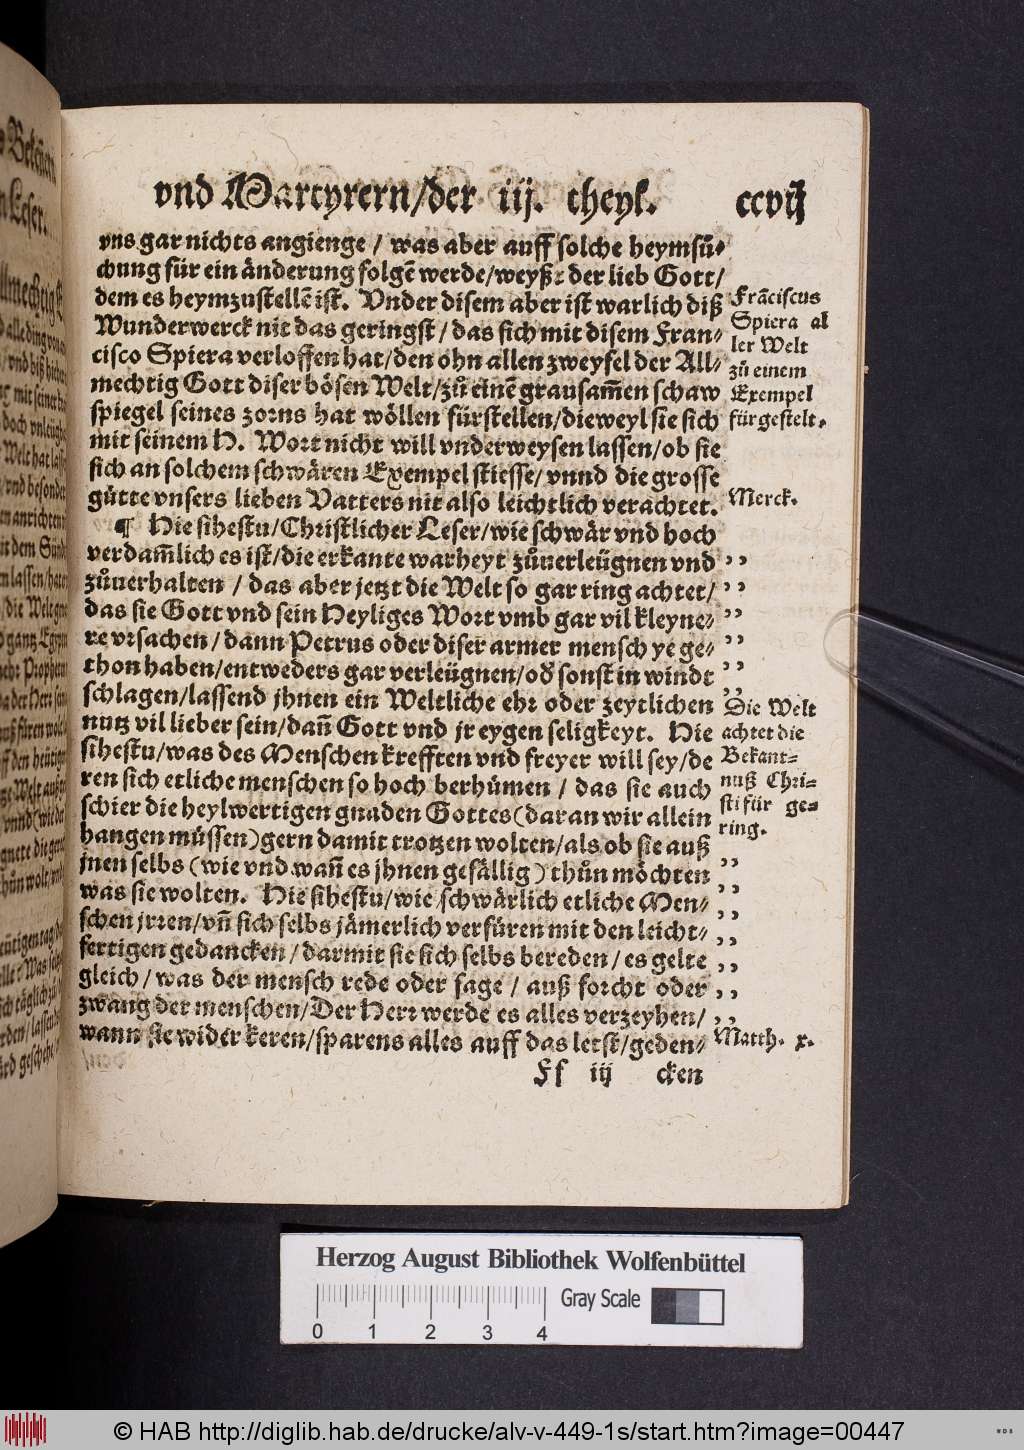 vnd Martyrern/der iij. theyl. ccvij
vns gar nichts angienge / was aber auff solche heymsů⸗
chung für ein änderung folgē werde/weyßt der lieb Gott/
dem es heymzustellē ist. Vnder disem aber ist warlich diß
Wunderwerck nit das geringst / das sich mit disem Fran⸗
cisco Spiera verloffen hat/den ohn allen zweyfel der All⸗
mechtig Gott diser bösen Welt/zů einē grausam̄en schaw
spiegel seines zorns hat wöllen fürstellen/dieweyl sie sich
mit seinem H. Wort nicht will vnderweysen lassen/ob sie
sich an solchem schwären Exempel stiesse/ vnnd die grosse
gütte vnsers lieben Vatters nit also leichtlich verachtet.
¶ Hie sihestu/Christlicher Leser/wie schwär vnd hoch
verdam̄lich es ist/die erkante warheyt zůuerleügnen vnd
zůuerhalten / das aber jetzt die Welt so gar ring achtet/
das sie Gott vnd sein Heyliges Wort vmb gar vil kleyne⸗
re vrsachen/dann Petrus oder diser armer mensch ye ge⸗
thon haben/entweders gar verleügnen/od̕ sonst in windt
schlagen/lassend jhnen ein Weltliche ehr oder zeytlichen
nutz vil lieber sein/dan̄ Gott vnd jr eygen seligkeyt. Hie
sihestu/was des Menschen krefften vnd freyer will sey/de
ren sich etliche menschen so hoch berhümen / das sie auch
schier die heylwertigen gnaden Gottes(daran wir allein
hangen müssen)gern damit trotzen wolten/als ob sie auß
jnen selbs (wie vnd wan̄ es jhnen gefällig) thůn möchten
was sie wolten. Hie sihestu/wie schwärlich etliche Men⸗
schen jrren/vn̄ sich selbs jämerlich verfüren mit den leicht⸗
fertigen gedancken/darmit sie sich selbs bereden/es gelte
gleich/was der mensch rede oder sage/ auß forcht oder
zwang der menschen/Der Herr werde es alles verzeyhen/
wann sie wider keren/sparens alles auff das letst/geden⸗
Ff iij cken
Frāciscus
Spiera al
ler Welt
zů einem
Exempel
fürgestelt.
Merck.
Die Welt
achtet die
Bekant⸗
nuß Chri⸗
sti für ge⸗
ring.
Matth. x.
Herzog August Bibliothek Wolfenbüttel
Gray Scale
0 1 2 3 4
© HAB http://diglib.hab.de/drucke/alv-v-449-1s/start.htm?image=00447